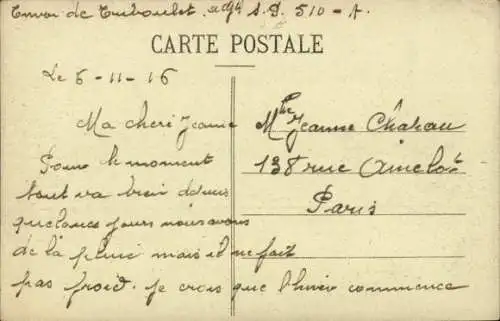 Envoi de Turboulet adjt S.P. 510 - A.
CARTE POSTALE
Le 6-11-16
Ma cheri Jeanne
Pour le moment
tout va bien depuis
quelques jours nous avons
de la pluie mais il ne fait
pas froid. je crois que l'hiver commence
Mlle Jeanne Château
138 rue Amelot
Paris